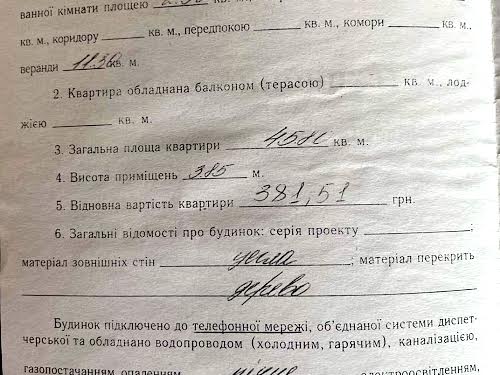 ванної кімнати площею
кв. м., коридору ________ кв. м., передпокою ________ кв. м., комори ________ кв. м.,
веранди 11.36 кв. м.
2. Квартира обладнана балконом (терасою) ________ кв. м., лод-
жією ________ кв. м.
3. Загальна площа квартири кв. м.
4. Висота приміщень 3.85 м.
5. Відновна вартість квартири 381,51 грн.
6. Загальні відомості про будинок: серія проекту ________;
матеріал зовнішніх стін цегла; матеріал перекрить
дерево
Будинок підключено до телефонної мережі, об'єднаної системи диспет-
черської та обладнано водопроводом (холодним, гарячим), каналізацією,
газопостачанням опаленням електроосвітленням,